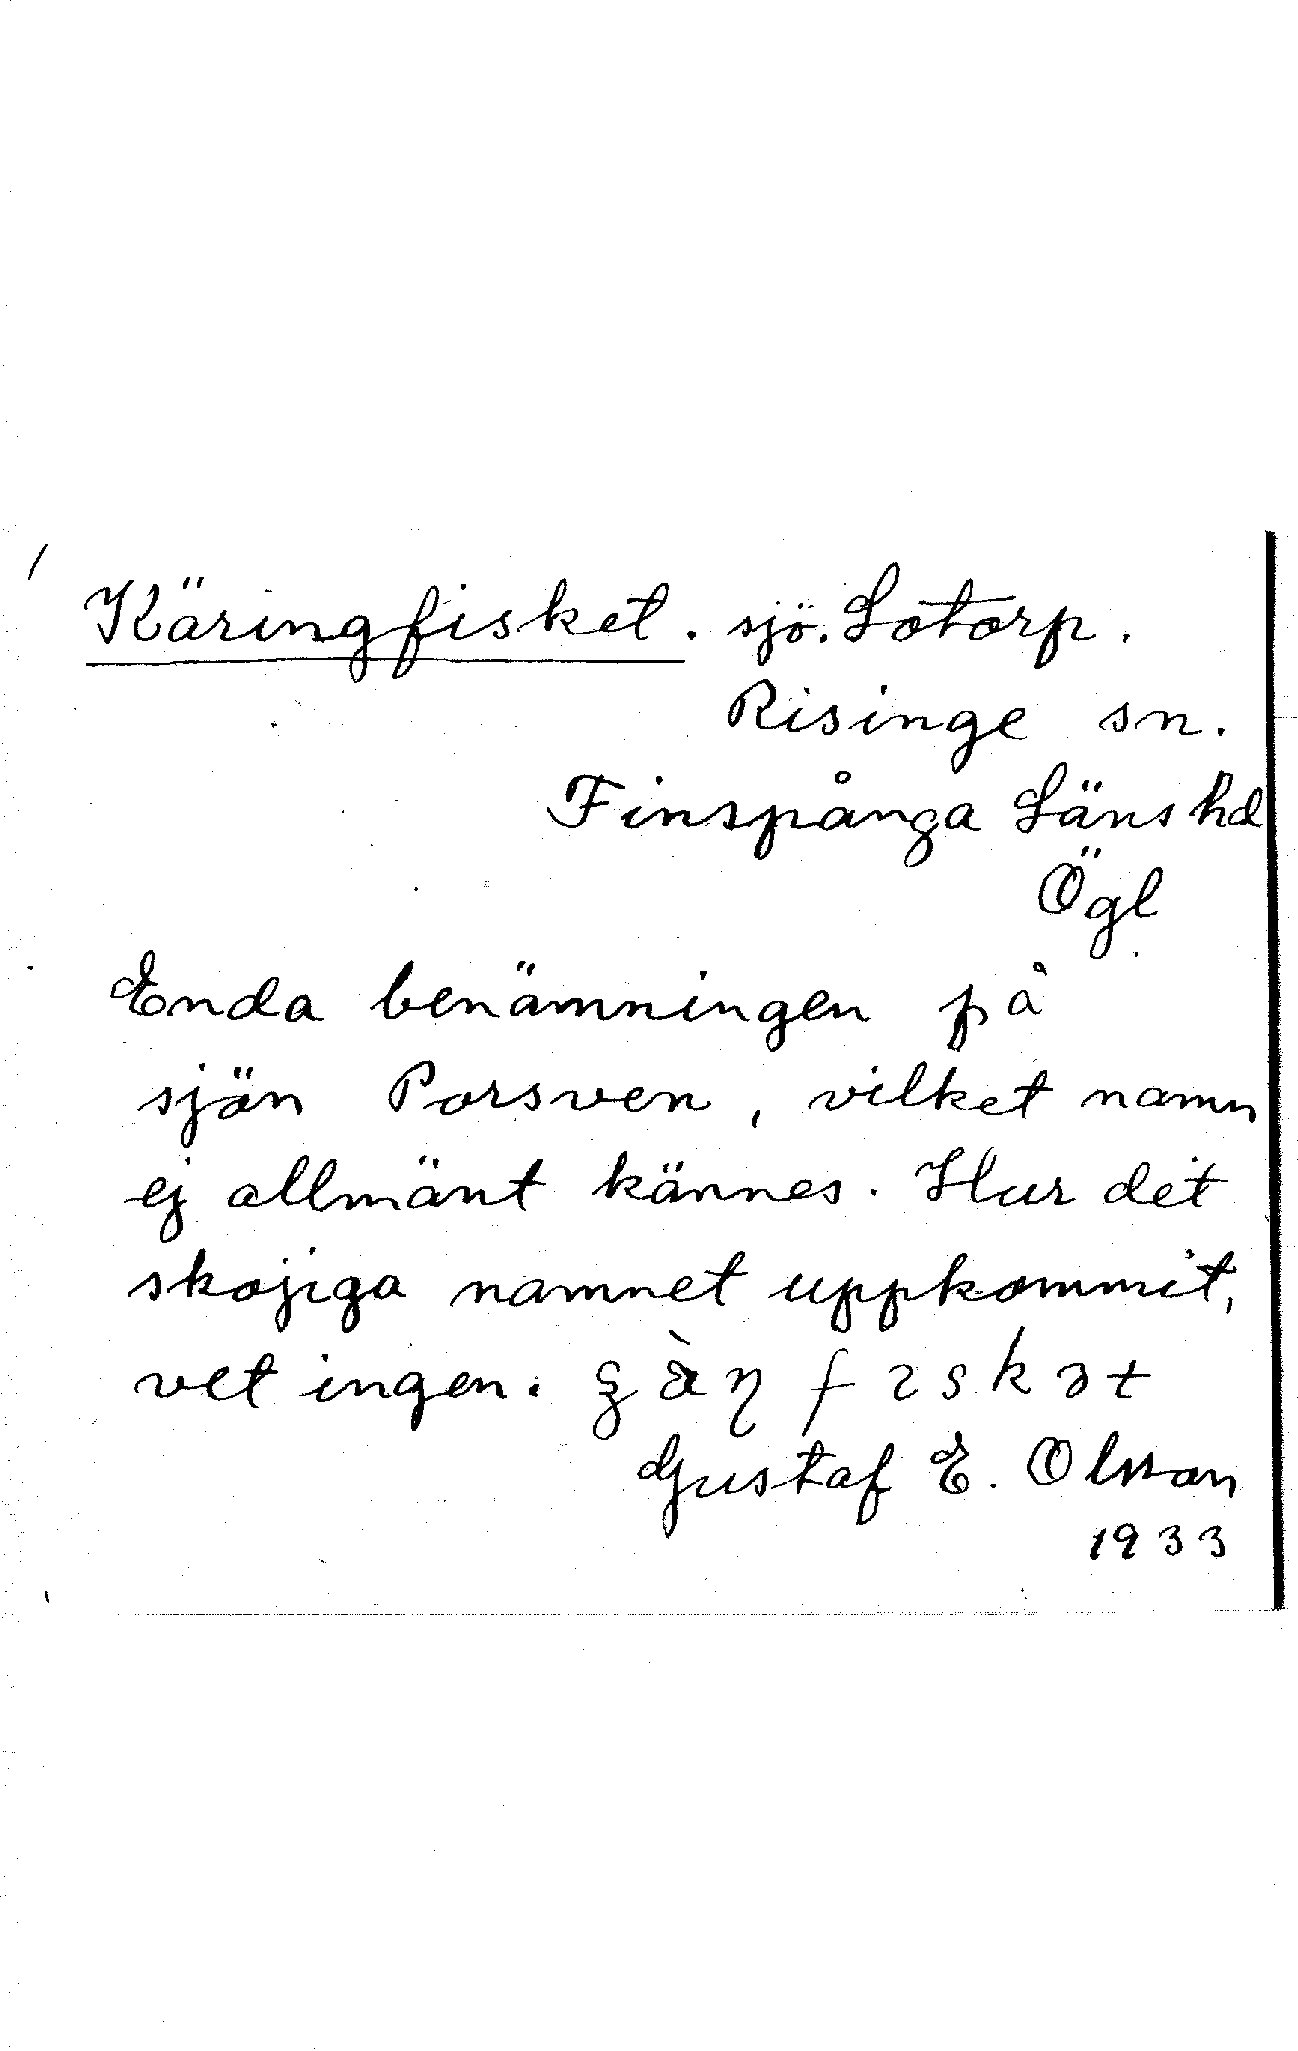 Käringfisket. sjö. Lotorp.
Risinge sn.
Finspånga Läns hd
Ögl
Enda benämningen på
sjön Porsven, vilket namn
ej allmänt kännes. Hur det
skojiga namnet uppkommit,
vet ingen.
Gustaf E. Olsson
1933